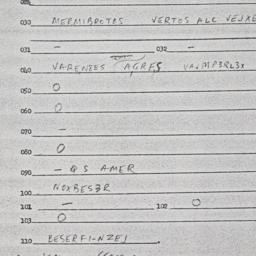 030 MERMIBROTES VERTOS ALL VEJXE
031 - 032 -
040 VARENTES CAGRES VAJMP3RL3X
050 O
060 O
070 -
080 O
090 - Q S AMER
100 NOXBES3R
101 - 102 O
103 O
110 BESERFI-NZEJ